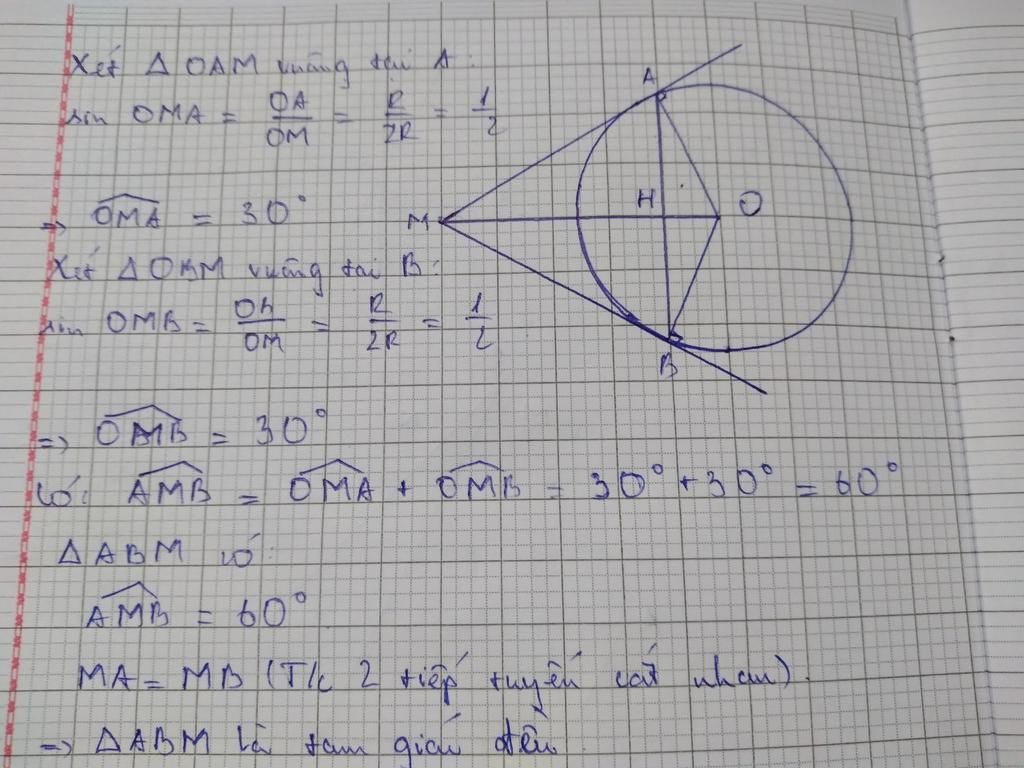 Xét Δ OAM vuông tại A:
sin OMA = OA/OM = R/2R = 1/2
=> OMA = 30°
Xét Δ OBM vuông tại B:
sin OMB = OB/OM = R/2R = 1/2
=> OMB = 30°
Có: AMB = OMA + OMB = 30° + 30° = 60°
Δ ABM có:
AMB = 60°
MA = MB (T/c 2 tiếp tuyến cắt nhau).
=> Δ ABM là tam giác đều.
A
M H O
B